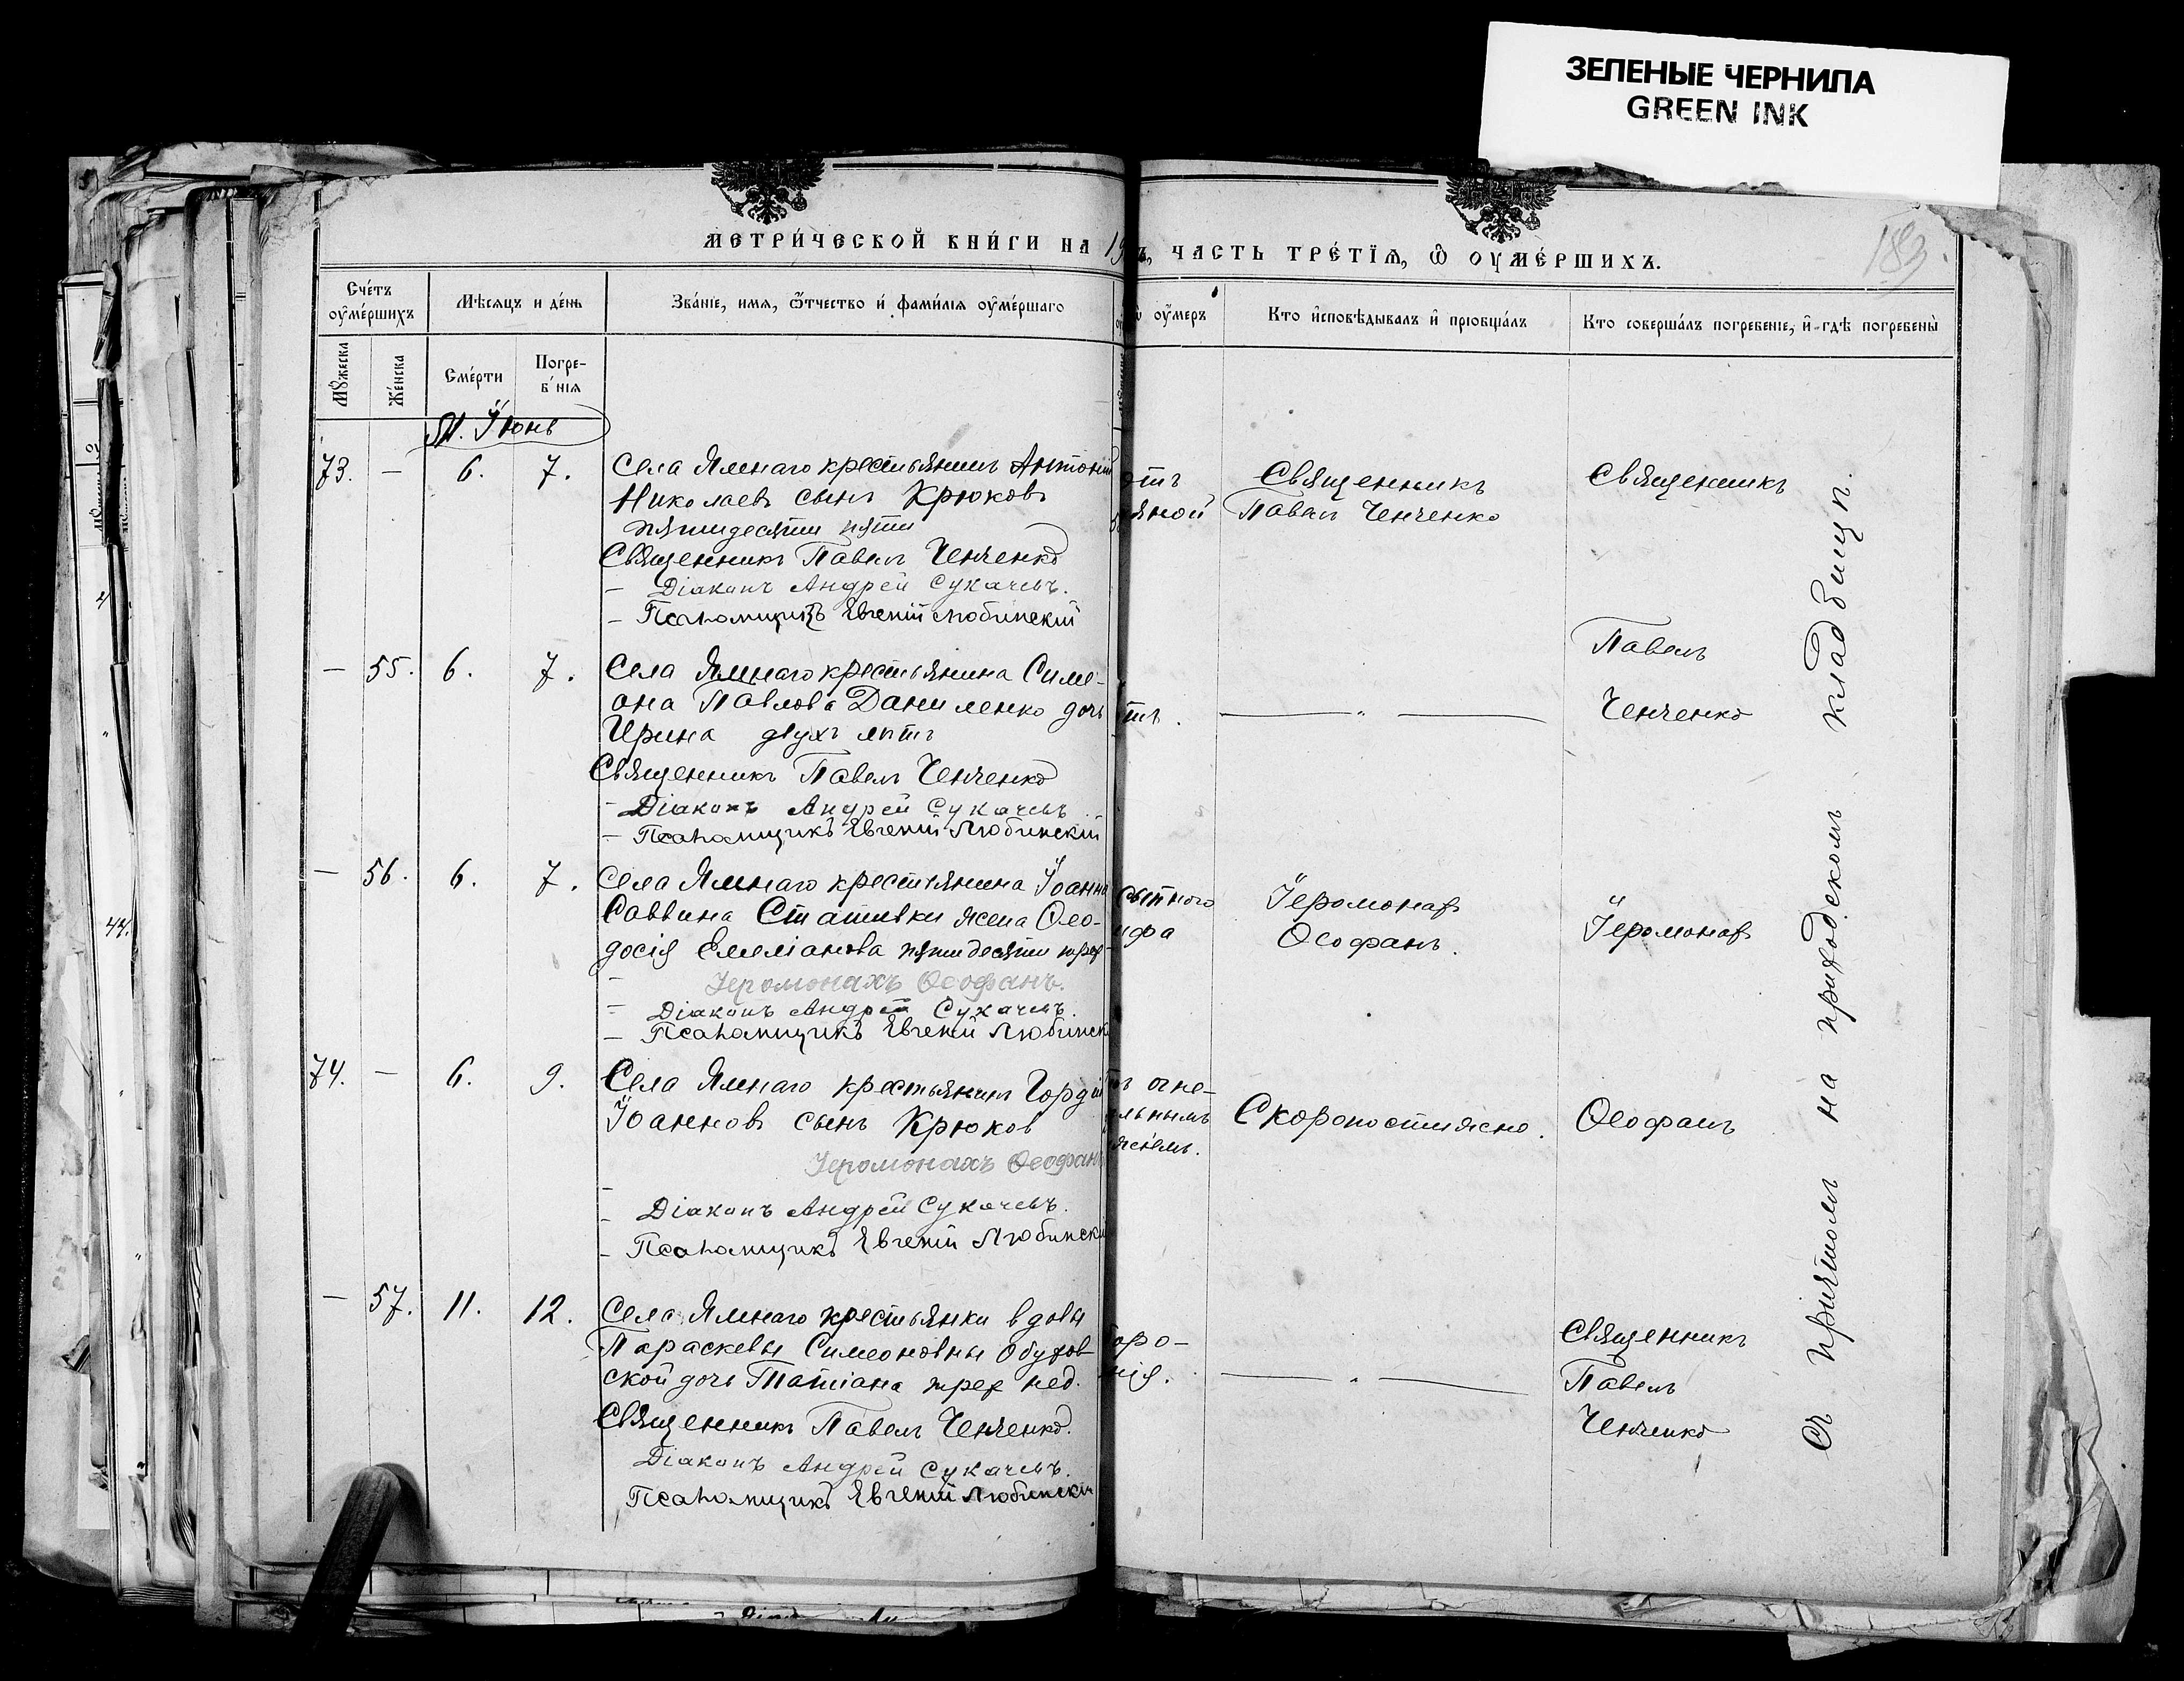 ЗЕЛЕНЫЕ ЧЕРНИЛА
GREEN INK
183.
МЕТРИ́ЧЕСКОЙ КНИ́ГИ НА 19
ъ, ЧАСТЬ ТРЕ́ТІѦ, Ѽ ОУМЕ́РШИХЪ.
Сче́тъ оу҆ме́ршихъ
Мѣсяцъ и де́нь
Зва́ніе, имя, ѿтчество и҆ фами́лія оу҆ме́ршаго
оу҆меръ
Кто и҆сповѣдывалъ и҆ пріобща́лъ
Кто соверша́лъ погребеніе, и҆ гдѣ погребены̀
Мꙋжеска
Же́нска
Сме́рти
Погре-
б́нія
М. Іюнь
73. — 6. 7. Села Ямнаго крестьянинъ Антоній
Николаевъ сынъ Крюковъ
пятидесяти пяти
Священникъ Павелъ Ченченко
— Діаконъ Андрей Сукачевъ.
— Псаломщикъ Евгеній Любинскій
Священникъ
Павелъ Ченченко
Священникъ
— 55. 6. 7. Села Ямнаго крестьянина Симе-
она Павлова Даниленко дочь
Ирина двухъ лѣтъ
Священникъ Павелъ Ченченко
— Діаконъ Андрей Сукачевъ
— Псаломщикъ Евгеній Любинскій
— " —
Павелъ
Ченченко
— 56. 6. 7. Села Ямнаго крестьянина Іоанна
Саввина Сташивки жена Ѳео-
досія Емеліанова пятидесяти трех
— Іеромонахъ Ѳеофанъ.
— Діаконъ Андрей Сукачевъ.
— Псаломщикъ Евгеній Любинск
сыпного
ифа
Іеромонах
Ѳеофанъ.
Іеромонах
74. — 6. 9. Села Ямнаго крестьянинъ Гордій
Іоанновъ сынъ Крюков
Іеромонахъ Ѳеофанъ
—
— Діаконъ Андрей Сукачевъ.
— Псаломщикъ Евгеній Любински
огне-
льнымъ
жіемъ.
Скоропостижно.
Ѳеофанъ
— 57. 11. 12. Села Ямнаго крестьянки вдовы
Параскевы Симеоновны Обухов-
ской дочь Татіана трех нед.
Священникъ Павелъ Ченченко.
Діаконъ Андрей Сукачевъ.
Псаломщикъ Евгеній Любински
оро-
нія.
— " —
Священникъ
Павелъ
Ченченко
Съ причтомъ на приходскомъ кладбищѣ.
44.